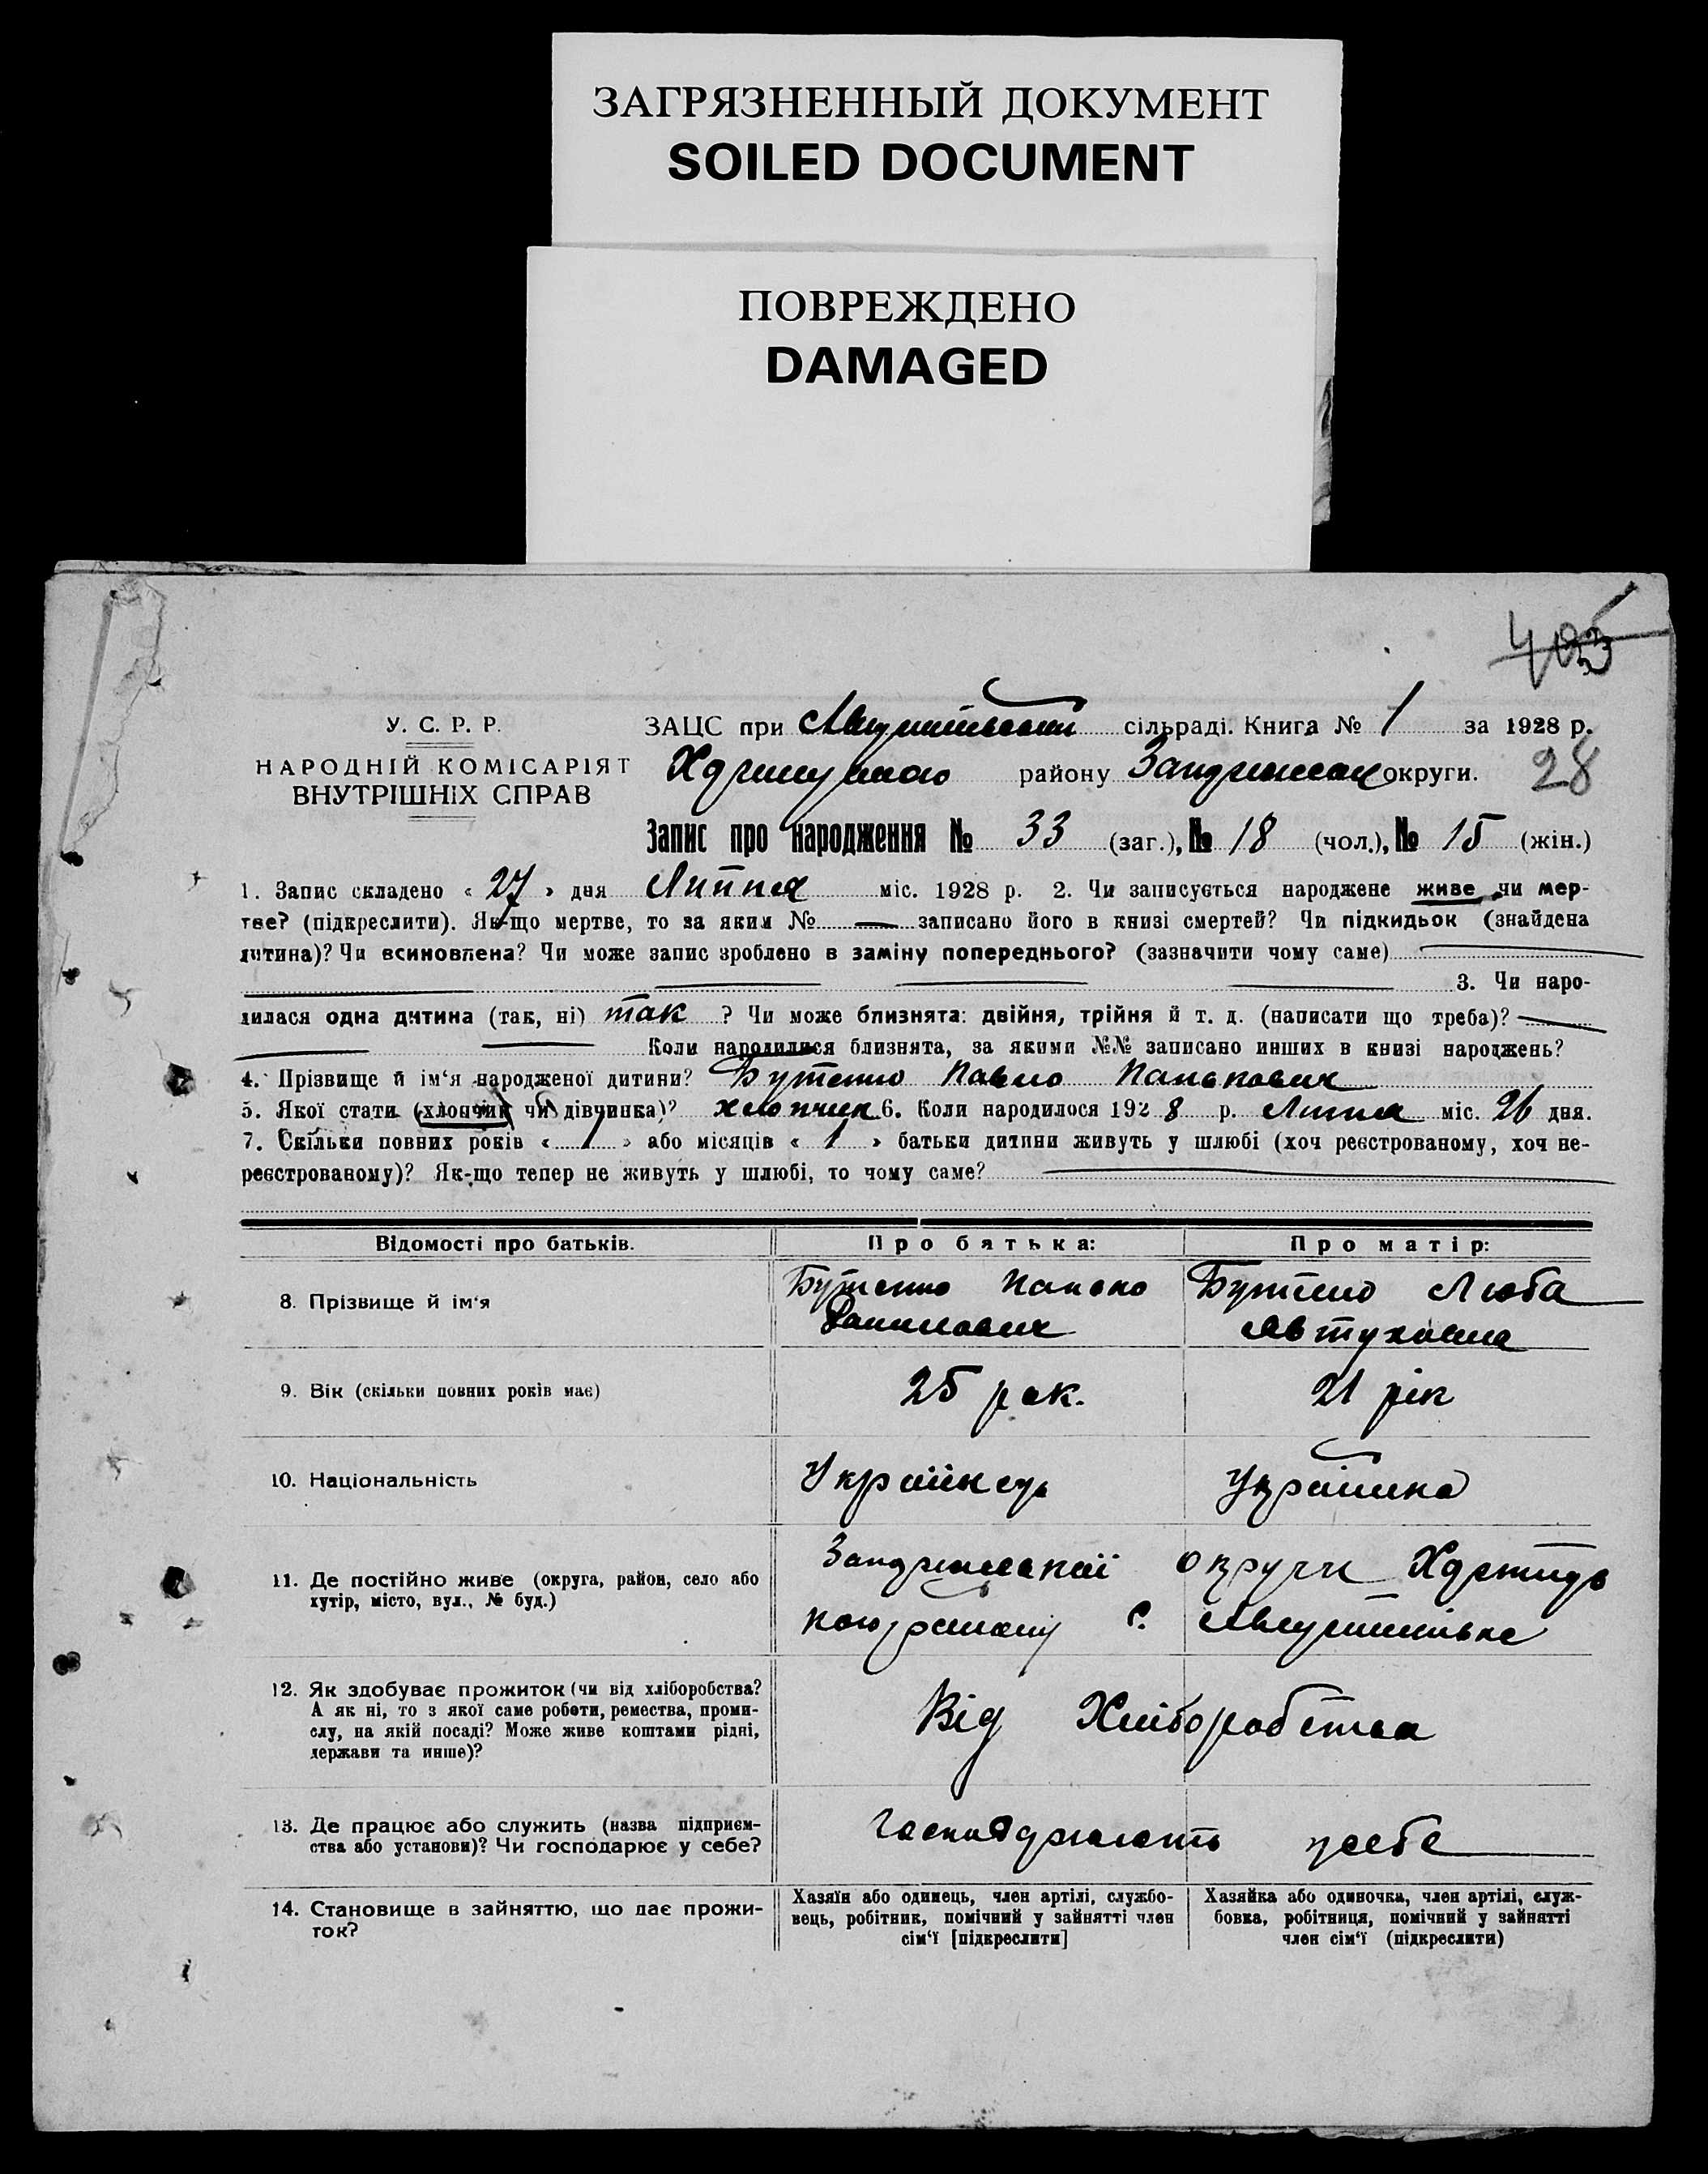 ЗАГРЯЗНЕННЫЙ ДОКУМЕНТ
SOILED DOCUMENT
ПОВРЕЖДЕНО
DAMAGED
405
У. С. Р. Р.
НАРОДНІЙ КОМІСАРІЯТ
ВНУТРІШНІХ СПРАВ
ЗАЦС при сільраді. Книга № 1 за 1928 р.
району округи. 28
Запис про народження № 33 (заг.), № 18 (чол.), № 15 (жін.)
1. Запис складено « 27 » дня Липня міс. 1928 р. 2. Чи записується народжене живе чи мер-
тве? (підкреслити). Як-що мертве, то за яким № — записано його в книзі смертей? Чи підкидьок (знайдена
дитина)? Чи всиновлена? Чи може запис зроблено в заміну попереднього? (зазначити чому саме)
3. Чи наро-
дилася одна дитина (так, ні) так ? Чи може близнята: двійня, трійня й т. д. (написати що треба)? —
Коли народилися близнята, за якими №№ записано инших в книзі народжень?
4. Прізвище й ім‘я народженої дитини? Бутенко Павло Панькович
5. Якої стати (хлопчик чи дівчинка)? хлопчик 6. Коли народилося 1928 р. Липня міс. 26 дня.
7. Скільки повних років « 1 » або місяців « 1 » батьки дитини живуть у шлюбі (хоч реєстрованому, хоч не-
реєстрованому)? Як-що тепер не живуть у шлюбі, то чому саме?
Відомості про батьків. Про батька: Про матір:
8. Прізвище й ім‘я Бутенко Панько Бутенко Люба
Данилович Автуховна
9. Вік (скільки повних років має) 25 рок. 21 рік
10. Національність Українець Українка
11. Де постійно живе (округа, район, село або
хутір, місто, вул., № буд.)
округи
району с.
12. Як здобуває прожиток (чи від хліборобства?
А як ні, то з якої саме роботи, ремества, проми-
слу, на якій посаді? Може живе коштами рідні,
держави та инше)?
Від Хліборобства
13. Де працює або служить (назва підприєм-
ства або установи)? Чи господарює у себе?
усебе
14. Становище в зайняттю, що дає прожи-
ток?
Хазяїн або одинець, член артілі, службо-
вець, робітник, помічний у зайнятті член
сім‘ї [підкреслити]
Хазяйка або одиночка, член артілі, служ-
бовка, робітниця, помічний у зайнятті
член сім‘ї (підкреслити)